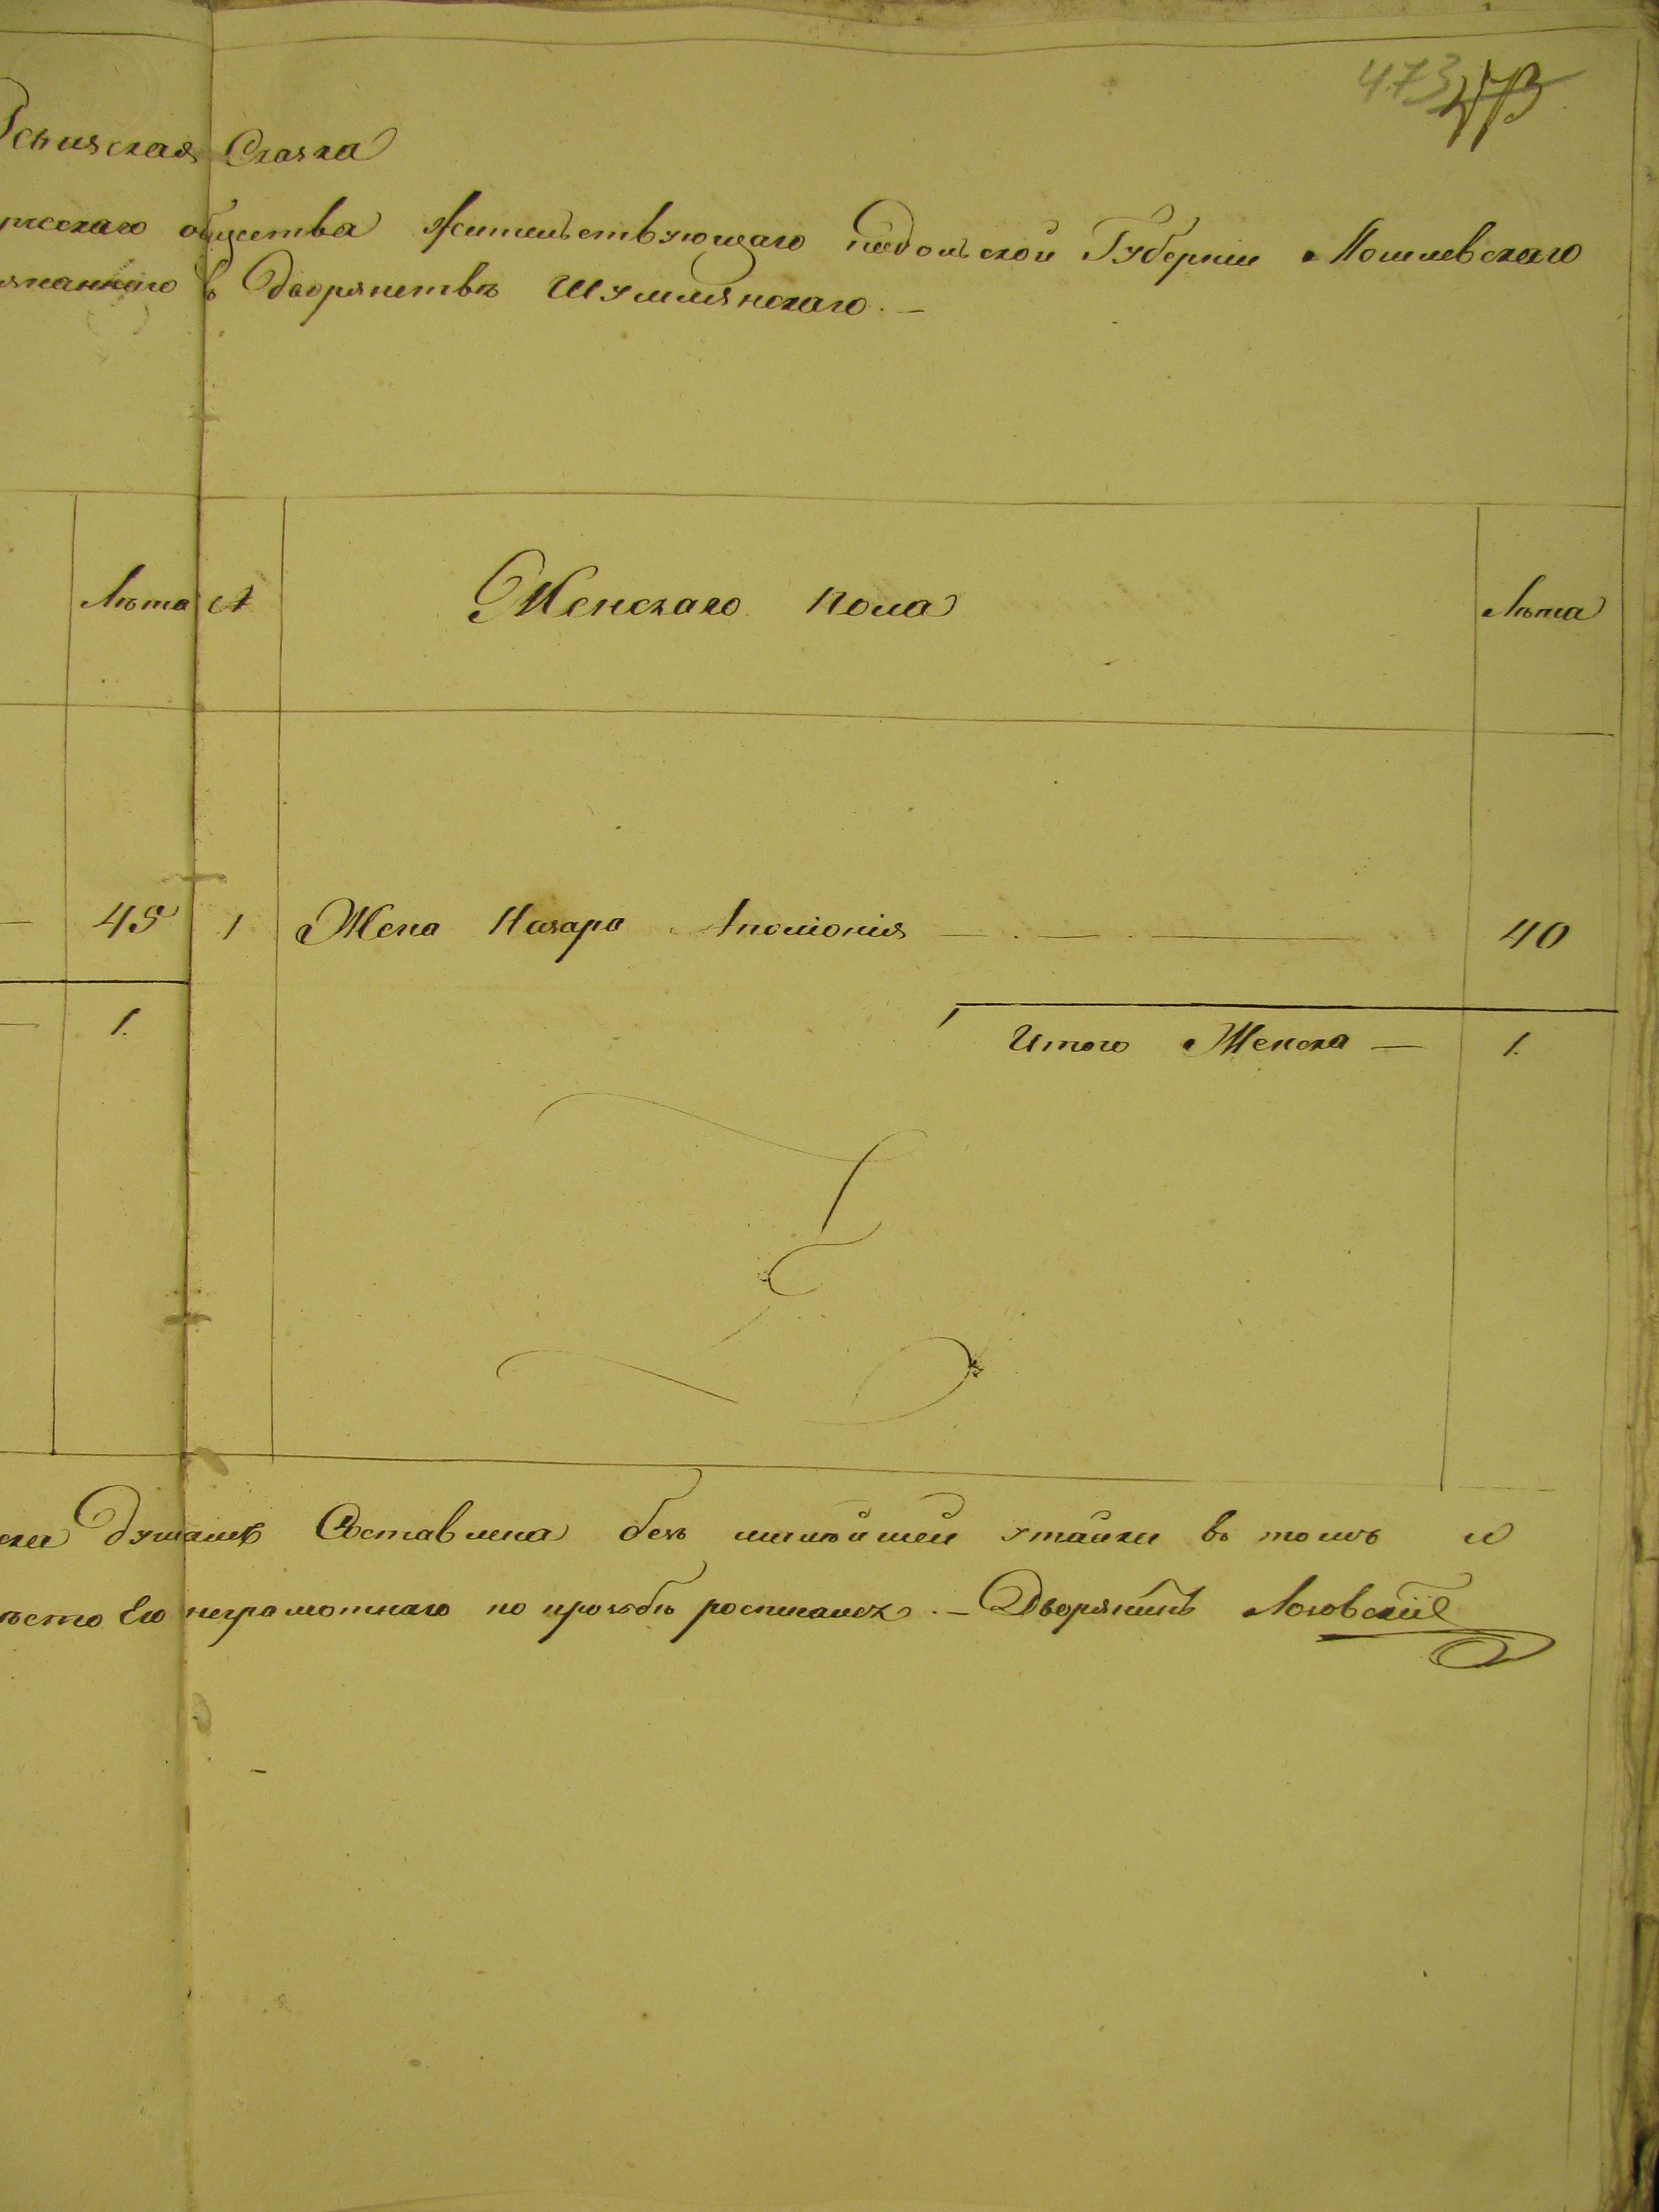 473 473
Ревизская Сказка
общества жительствующаго Подольской Губерніи Могилевскаго
въ дворянствѣ Шумлянскаго. —
Лѣта № Женскаго пола Лѣта
45 1 Жена Назара Аполіонія — 40
1. Итого Женска — 1.
душамъ Составлена безъ малѣйшей утайки въ томъ и
Его неграмотнаго по прозбѣ росписался. — Дворянинъ Лозовскій